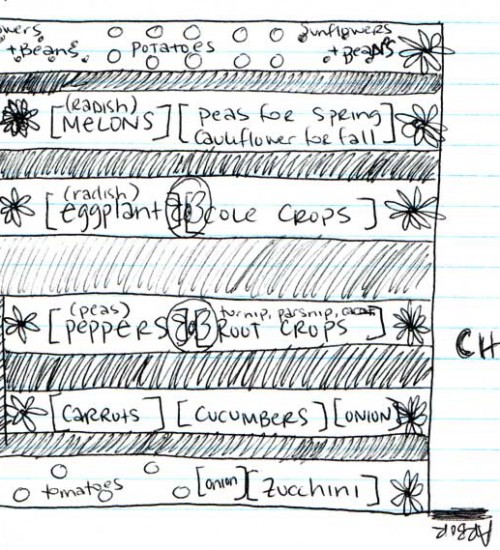 owers Sunflowers
+Beans POTATOES + Beans
(Radish) peas for spring
[MELONS] [cauliflower for fall]
(radish)
[eggplant] [COLE CROPS]
(peas) turnip, parsnip, carrot
[PEPPERS] [ROOT CROPS]
CH
[CARROTS] [CUCUMBERS] [ONION]
tomatoes [onion] [Zucchini]
ARBOR